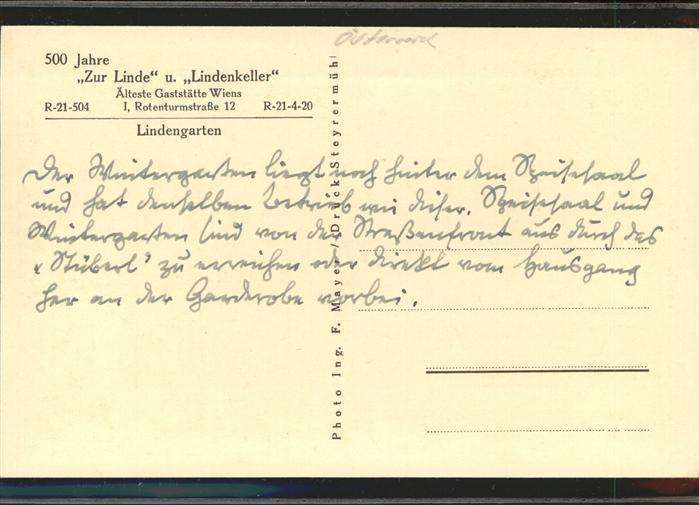 Österreich
500 Jahre
„Zur Linde“ u. „Lindenkeller“
Älteste Gaststätte Wiens
R-21-504 I, Rotenturmstraße 12 R-21-4-20
Lindengarten
Der Wintergarten liegt noch hinter dem Speisesaal
und hat denselben Betrieb wie dieser. Speisesaal und
Wintergarten sind von der Straßenfront aus durch das
"Stüberl" zu erreichen oder direkt vom Hausgang
her an der Garderobe vorbei.
Photo Ing. F. Mayer / Druck Steyrermühl